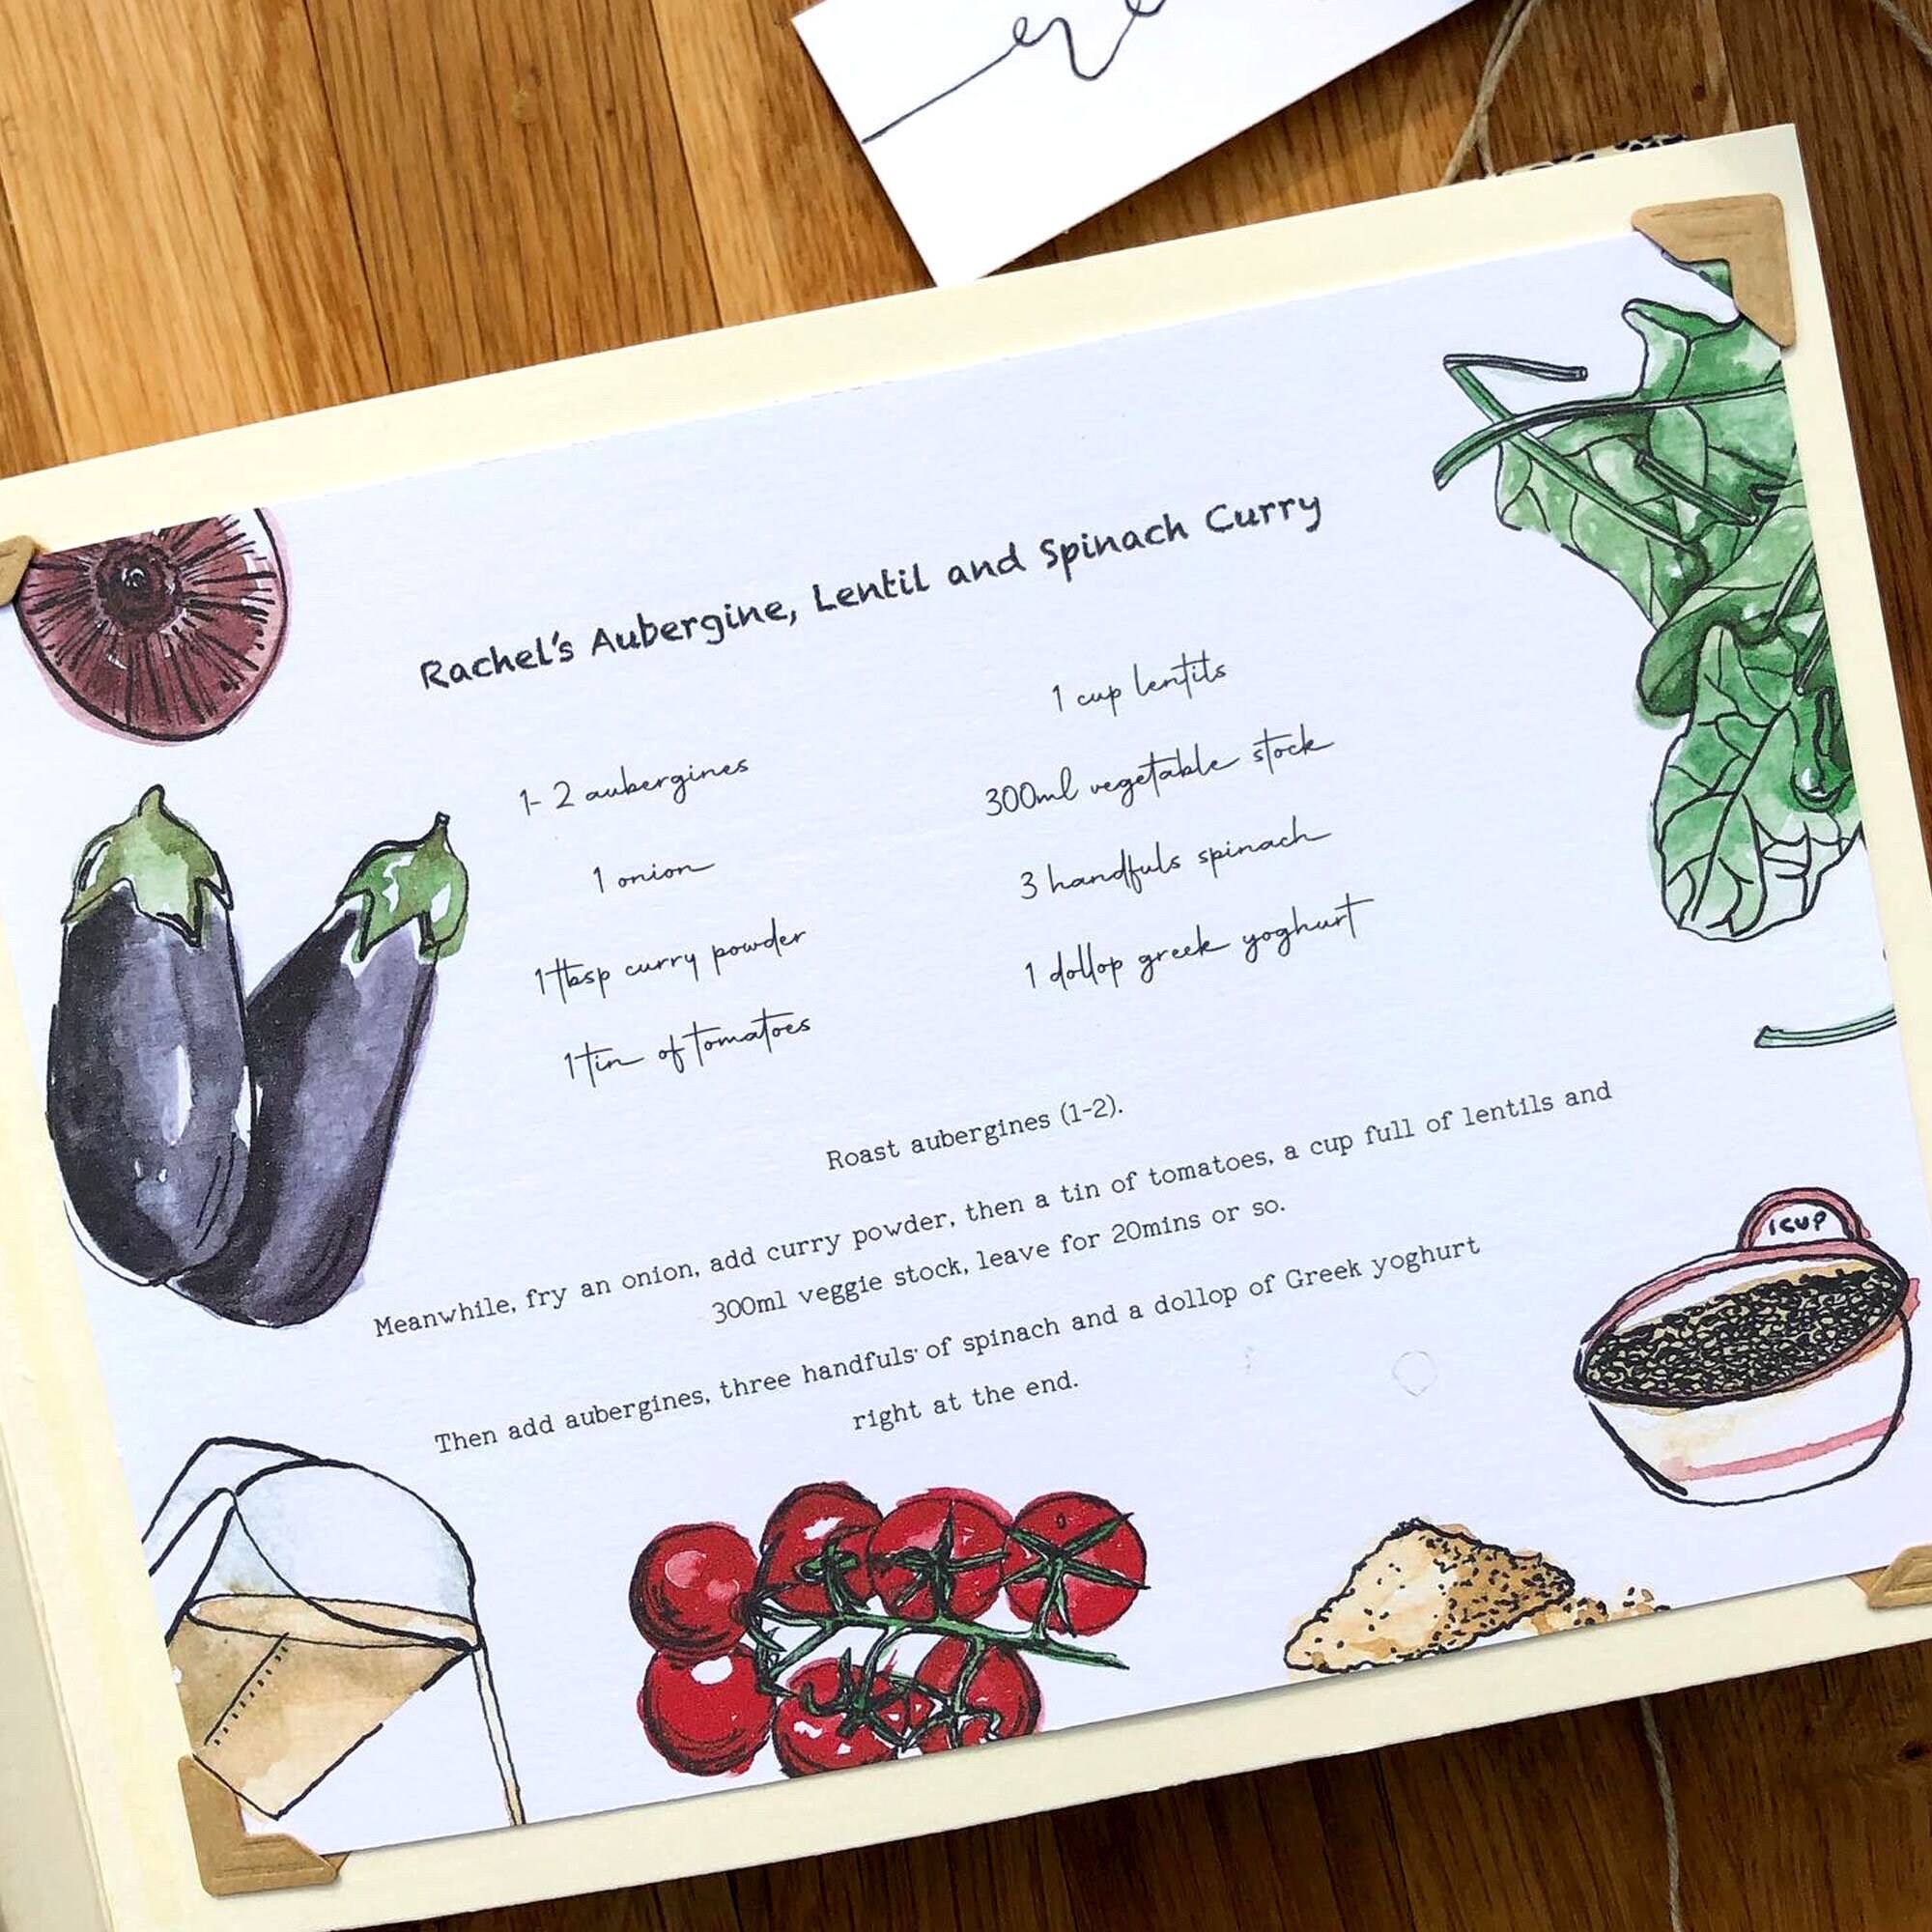 Rachel's Aubergine, Lentil and Spinach Curry
1-2 aubergines
1 onion
1 tbsp curry powder
1 tin of tomatoes
1 cup lentils
300ml vegetable stock
3 handfuls spinach
1 dollop greek yoghurt
Roast aubergines (1-2).
Meanwhile, fry an onion, add curry powder, then a tin of tomatoes, a cup full of lentils and
300ml veggie stock, leave for 20mins or so.
Then add aubergines, three handfuls of spinach and a dollop of Greek yoghurt
right at the end.
1CUP